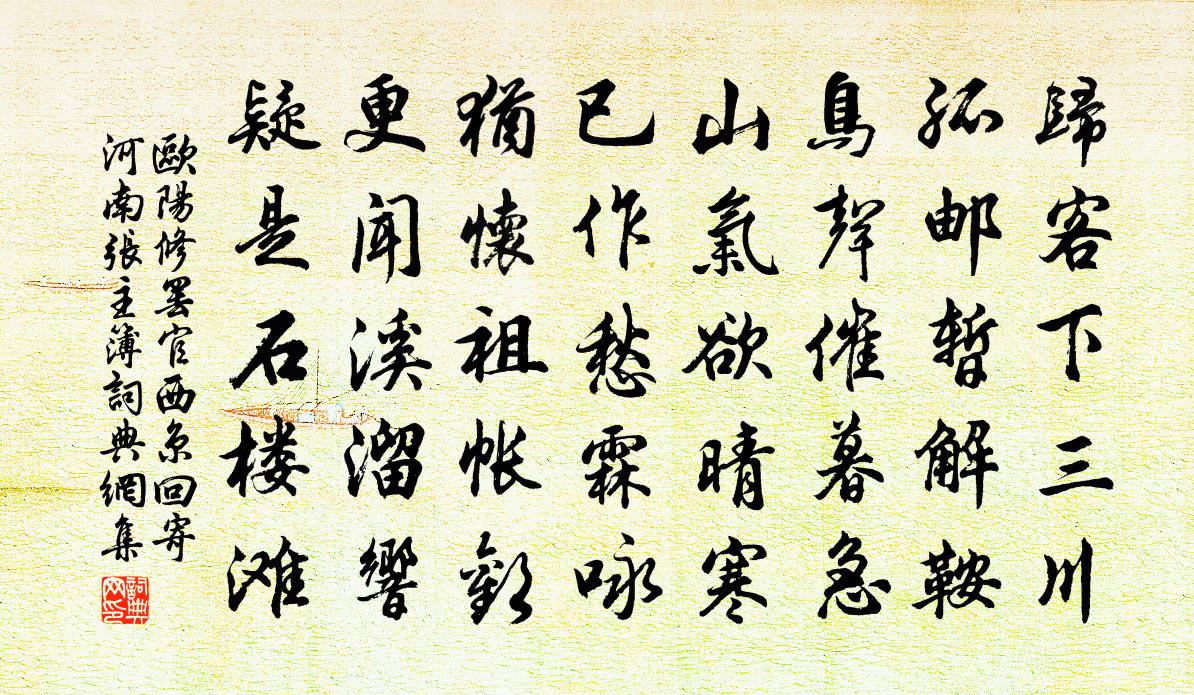 歸客下三川
孤邮暫解鞍
鳥聲催暮急
山氣欲晴寒
已作愁霖咏
猶懷祖帐歡
更聞溪溜響
疑是石楼滩
歐陽修罢官西京回寄
河南張主簿詞典網集
詞典网印